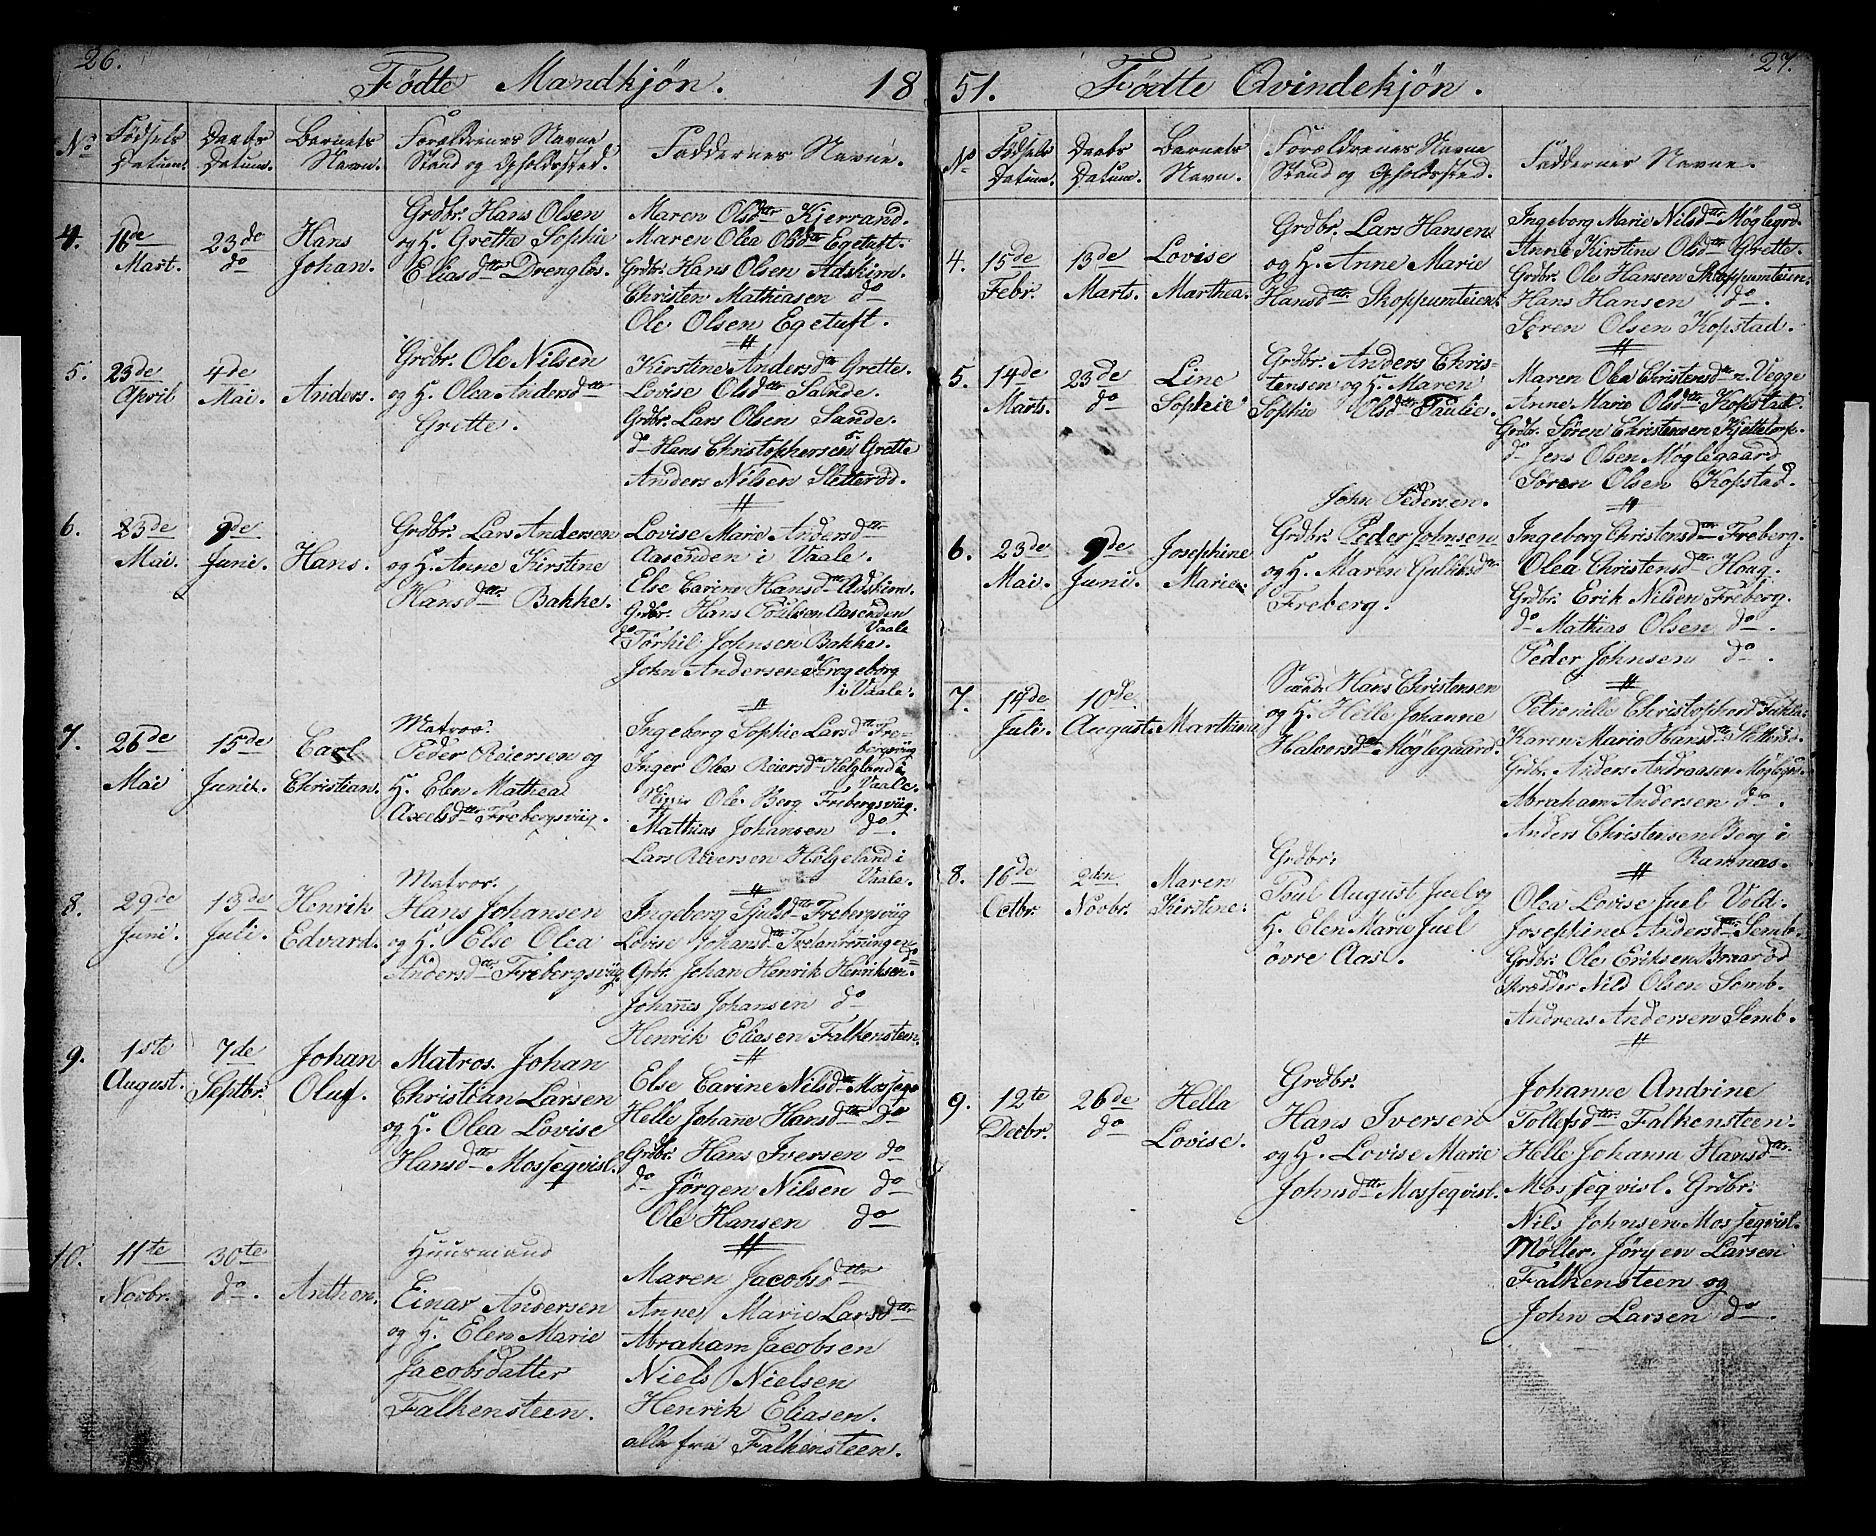 26.
Fødte Mandkjøn. 18
No
Fødsels Datum.
Daabs Datum.
Barnets Navn.
Forældrenes Navne
Stand og Opholdssted.
Faddernes Navne.
4.
16de
Mart.
23de
do
Hans
Johan.
Grdbr. Hans Olsen
og H. Grethe Sophie
Eliasdttr Drengløs.
Maren Olsdttr Kjerrand.
Maren Olea Olsdttr Egetuft.
Grdbr. Hans Olsen Adskim.
Christen Mathiasen do
Ole Olsen Egetuft.
5.
23de
April
4de
Mai.
Anders.
Grdbr. Ole Nilsen
og H. Olea Andersdttr
Grette.
Kirstine Andersdtr Grette.
Lovise Olsdttr Sande.
Grdbr. Lars Olsen Sande.
do Hans Christophersen Grette
Anders Nilsen Sletterød.
6.
23de
Mai.
9de
Juni.
Hans.
Grdbr. Lars Andersen
og H. Anne Kirstine
Hansdttr Bakke.
Lovise Marie Andersdttr
Aasenden i Vaale.
Else Carine Hansdttr Adskim.
Grdbr. Hans Poulsen Aasenden
Vaale
do Torkil Johnsen Bakke.
John Andersen Krogeborg
i Vaale.
7.
26de
Mai
15de
Juni.
Carl
Christian.
Matros.
Peder Reiersen og
H. Elen Mathea
Axelsdttr Frebergsviig.
Ingeborg Sophie Larsdttr Fre-
bergsviig
Inger Olea Reiersdtr Helgland i
Vaale.
Ole Berg Frebergsviig.
Mathias Johansen do.
Lars Reiersen Helgeland i
Vaale.
8.
29de
Juni.
13de
Juli.
Henrik
Edvard.
Matros.
Hans Johansen
og H. Else Olea
Andersdttr Frebergsviig
Ingeborg Frebergsviig
Lovise Johansdtr
Grbr. Johan Henrik Henriksen. do
Johannes Johansen do
Henrik Eliasen Falkensteen.
9.
1ste
August.
7de
Septbr.
Johan
Oluf.
Matros. Johan
Christian Larsen
og H. Olea Lovise
Hansdttr Mosseqvist.
Else Carine Nilsdttr Mosseqv.
Helle Johanne Hansdttr Do
Grdbr. Hans Iversen do
do Jørgen Nilsen do
Ole Hansen do
10.
11te
Novbr.
30te
do.
Anthon.
Huusmand
Einar Andersen
og H. Elen Marie
Jacobsdatter
Falkensteen.
Maren Jacobsdttr
Anne Marie Larsdttr
Abraham Jacobsen
Niels Nielsen
Henrik Eliasen.
alle fra Falkensteen.
27.
51. Fødte Qvindekjøn.
No
Fødsels Datum.
Daabs Datum.
Barnets Navn.
Forældrenes Navne
Stand og Opholdssted.
Faddernes Navne.
4.
15de
Febr.
13de
Marts.
Lovise
Marthea.
Grdbr. Lars Hansen
og H. Anne Marie
Hansdttr Skoppumteien.
Ingeborg Marie Nilsdttr Møglegrd.
Anne Kirstine Olsdttr Grette.
Grdbr. Ole Hansen Skoppumteien.
Hans Hansen do.
Søren Olsen Kopstad.
5.
14de
Marts.
23de
do
Line
Sophie.
Grdbr. Anders Chris-
tensen og H. Maren
Sophie Olsdttr Paulie.
Maren Olea Christensdttr n. Vegge
Anne Marie Olsdttr Kopstad.
Grdbr. Søren Christensen Kjettetorp.
do Jens Olsen Møglegaard
Søren Olsen Kopstad.
6.
23de
Mai.
9de
Juni.
Josephine
Marie.
John Pedersen.
Grdbr. Peder Johnsen
og H. Maren Guliksdtr
Freberg.
Ingeborg Christensdttr Freberg.
Olea Christensdttr Houg.
Grdbr. Erik Nilsen Freberg.
do Mathias Olsen do.
Peder Johnsen do.
7.
14de
Juli.
10de
August.
Marthina
Hans Christensen
og H. Helle Johanne
Halversdttr Møglegaard.
Petronille
Karen Marie Hansdttr Sletterød.
Grdbr. Anders Andreasen Møglegrd.
Abraham Andersen do.
Anders Christensen Berg i
Ramnas.
8.
16de
Octbr.
2den
Novbr.
Maren
Kirstine.
Grdbr.
Poul August Juel og
H. Elen Marie Juel
øvre Aas.
Olea Lovise Juel Vold.
Josephine Andersdttr Semb.
Grdbr. Ole Eriksen Braarød
Skrædder Nils Olsen Semb.
Andreas Andersen Semb.
9.
12te
Decbr.
26de
do
Hella
Lovise.
Grdbr.
Hans Iversen
og H. Lovise Marie
Johnsdttr Mosseqvist.
Johanne Andrine
Tollefsdttr Falkensteen.
Helle Johanna Hansdttr.
Mosseqvist. Grdbr.
Nils Johnsen Mosseqvist.
Møller Jørgen Larsen
Falkensteen og
John Larsen do.